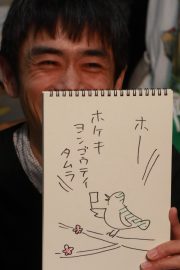 ホー
ホケキ
ヨンゴウティ
タムラ